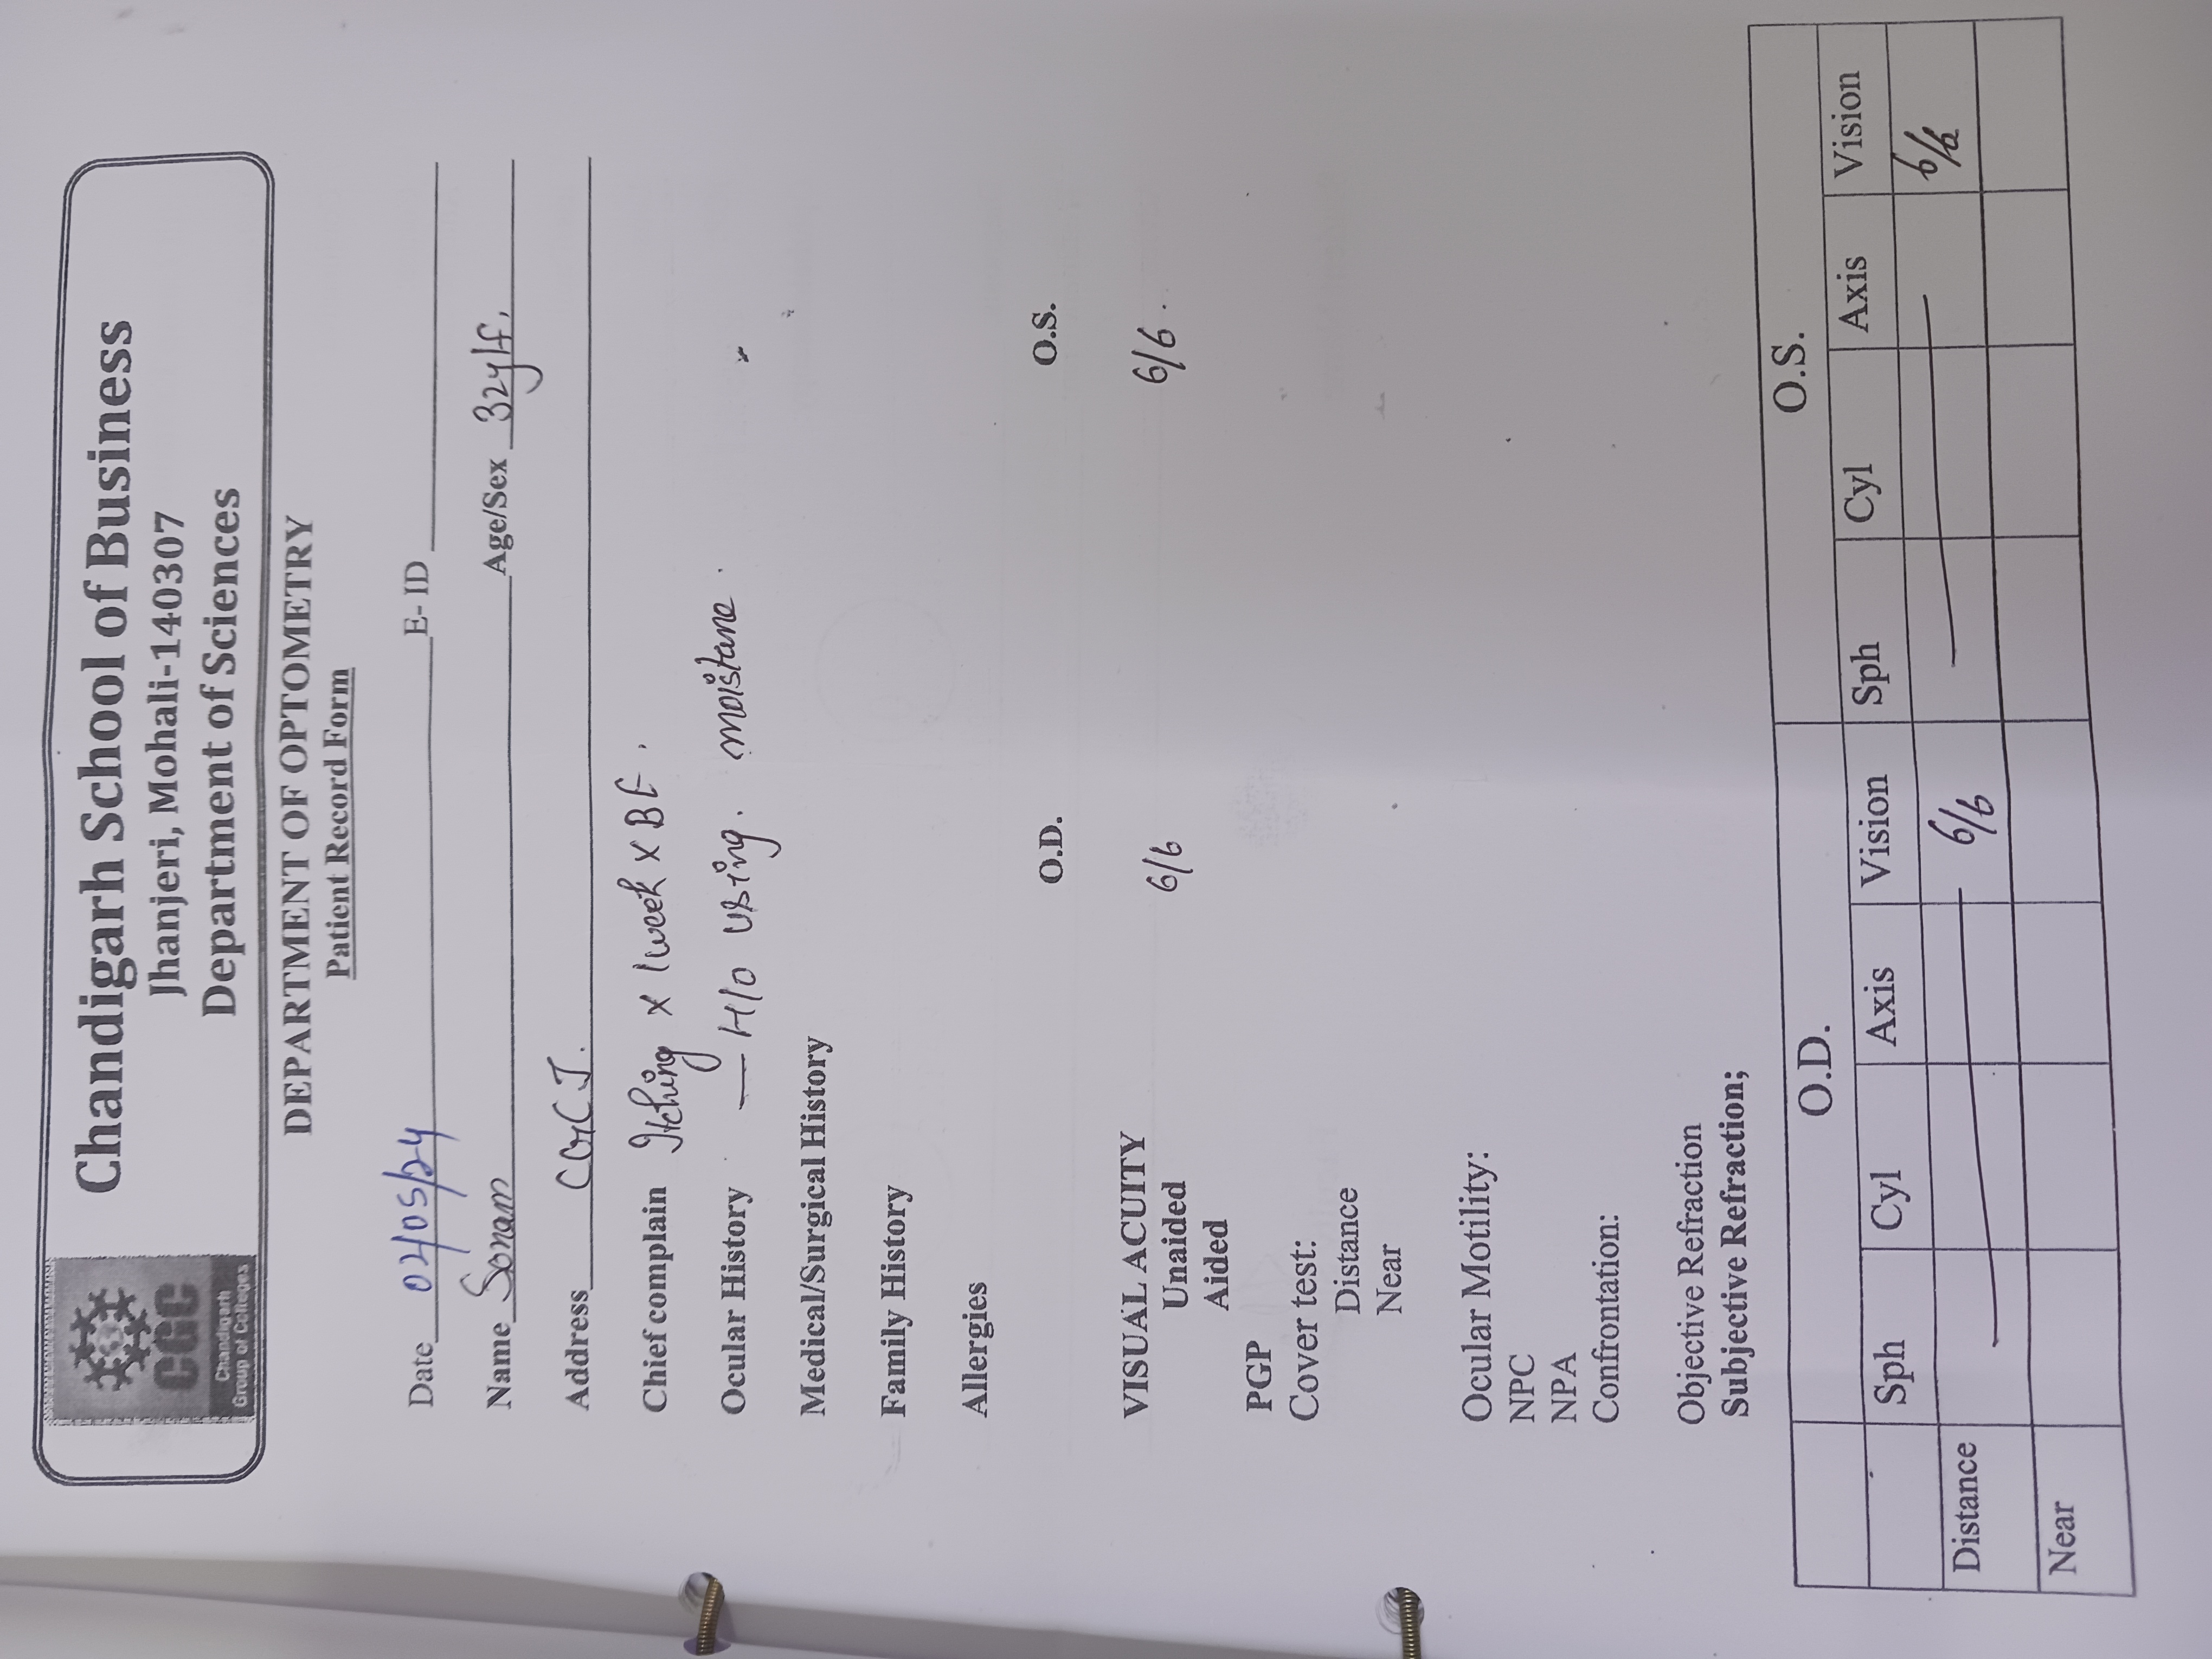 CGC
Chandigarh
Group of Colleges
Chandigarh School of Business
Jhanjeri, Mohali-140307
Department of Sciences
DEPARTMENT OF OPTOMETRY
Patient Record Form
Date 02/05/24 E- ID
Name Sonam Age/Sex 32y/f.
Address CGCJ.
Chief complain Itching x 1 week x BE.
Ocular History — H/o using. moistane.
Medical/Surgical History
Family History
Allergies
O.D. O.S.
VISUAL ACUITY
Unaided 6/6 6/6.
Aided
PGP
Cover test:
Distance
Near
Ocular Motility:
NPC
NPA
Confrontation:
Objective Refraction
Subjective Refraction;
O.D. O.S.
Sph Cyl Axis Vision Sph Cyl Axis Vision
Distance — 6/6 — 6/6
Near